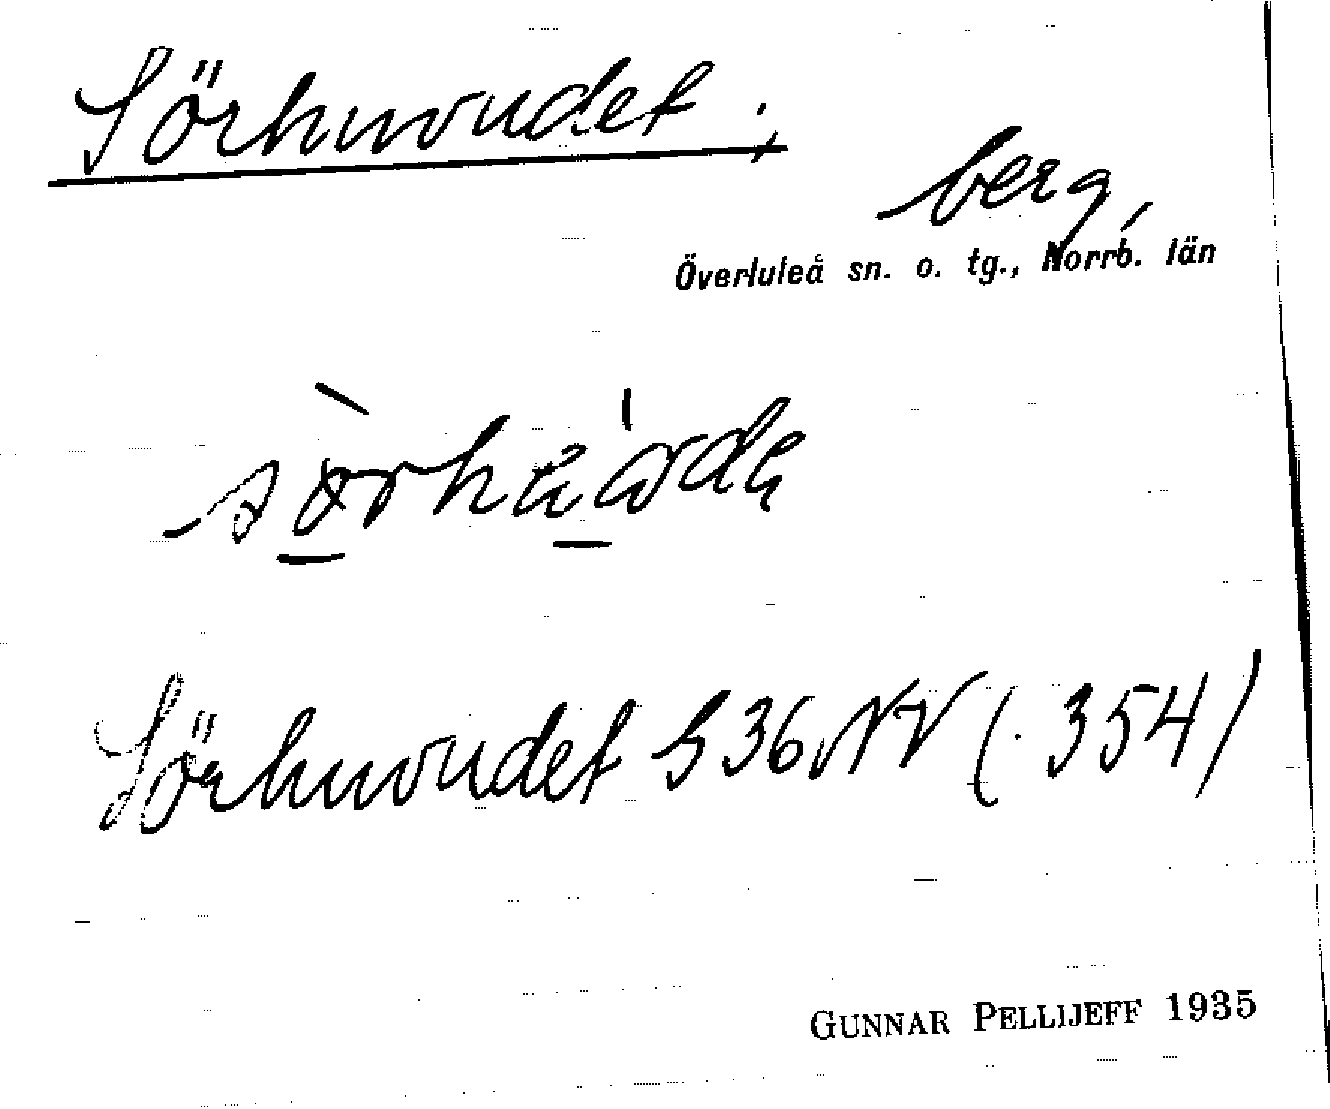 Sörhuvudet,
berg,
Överluleå sn. o. tg., Norrb. län
Sörhuvudet S 36 NV (. 354)
GUNNAR PELLIJEFF 1935